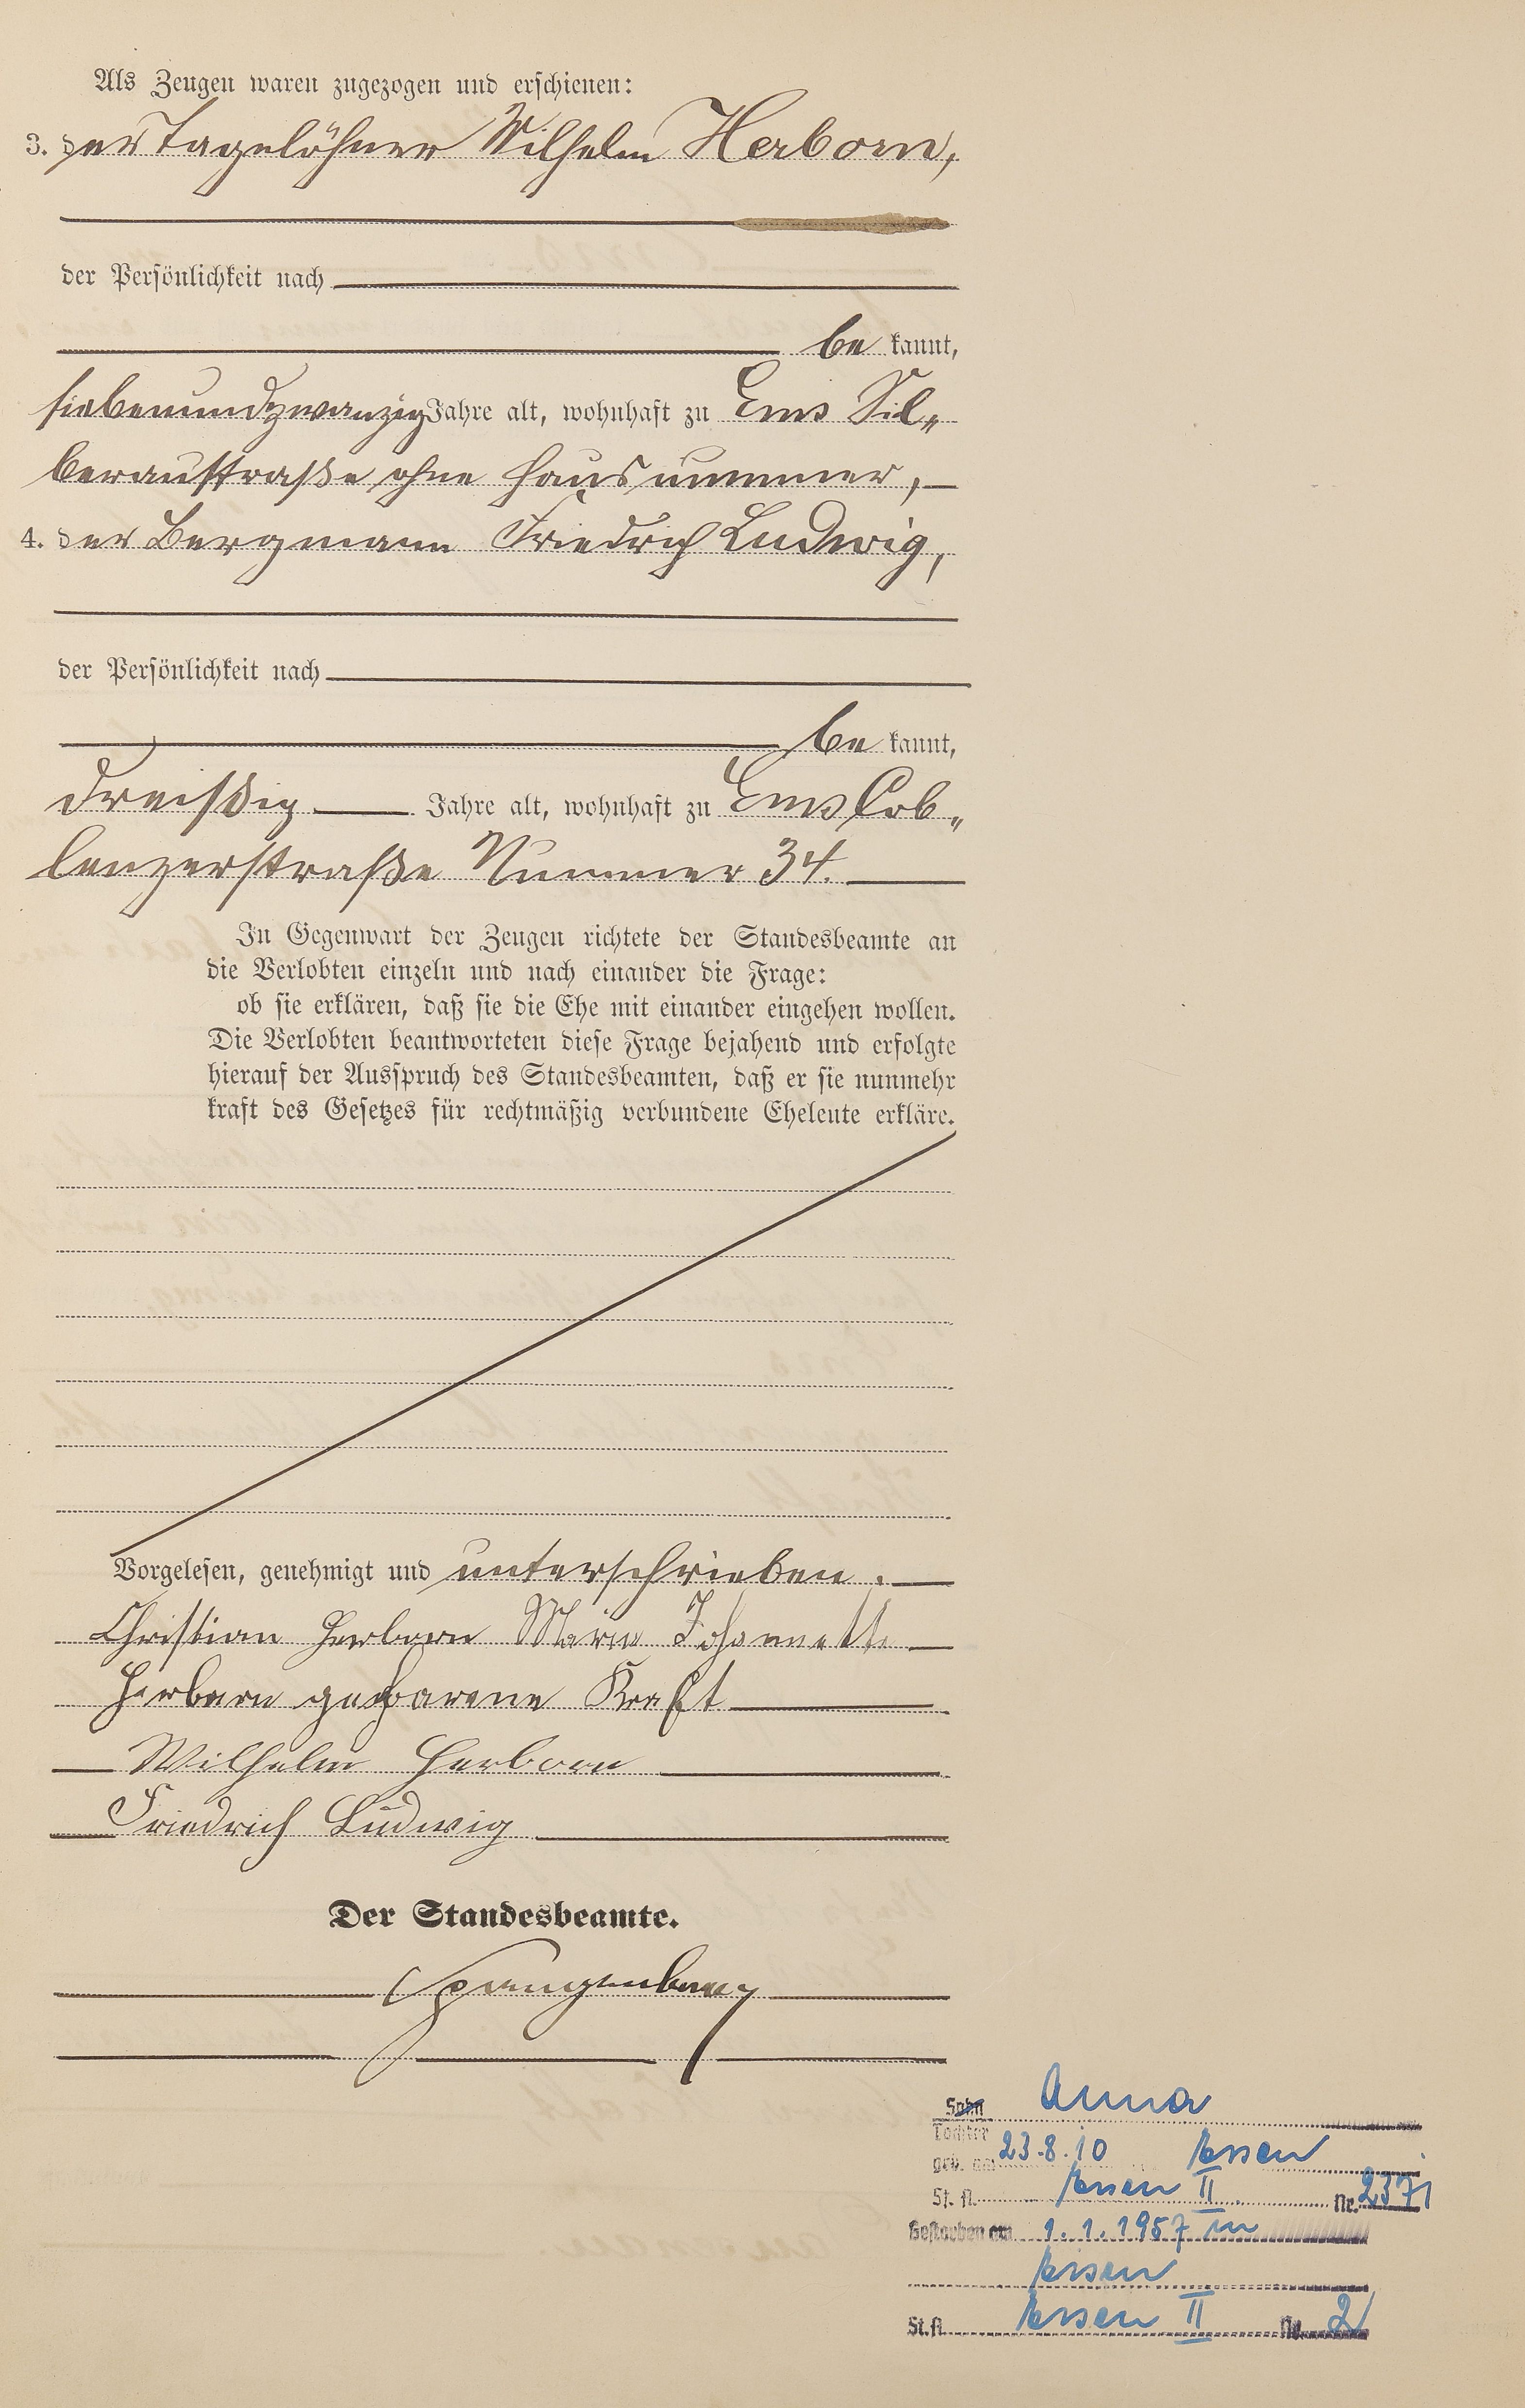 Als Zeugen waren zugezogen und erschienen:
3. der Tagelöhner Wilhelm Herborn,
der Persönlichkeit nach
be kannt,
siebenundzwanzig Jahre alt, wohnhaft zu Ems Sil„
beraustraße ohne Hausnummer,
4. der Bergmann Friedrich Ludwig,
der Persönlichkeit nach
be kannt,
dreißig Jahre alt, wohnhaft zu Ems Cob„
lenzerstraße Nummer 34.
In Gegenwart der Zeugen richtete der Standesbeamte an
die Verlobten einzeln und nach einander die Frage:
ob sie erklären, daß sie die Ehe mit einander eingehen wollen.
Die Verlobten beantworteten diese Frage bejahend und erfolgte
hierauf der Ausspruch des Standesbeamten, daß er sie nunmehr
kraft des Gesetzes für rechtmäßig verbundene Eheleute erkläre.
Vorgelesen, genehmigt und unterschrieben.
Christian Herborn Marie Johannette
Herborn geborene Kraft
Wilhelm Herborn
Friedrich Ludwig
Der Standesbeamte.
Spangenberg
Sohn Anna
Tochter
geb. am 23.8.10 Essen
St. A. Essen II Nr. 2371
Gestorben am 1.1.1957 in
Essen
St. A. Essen II Nr. 2